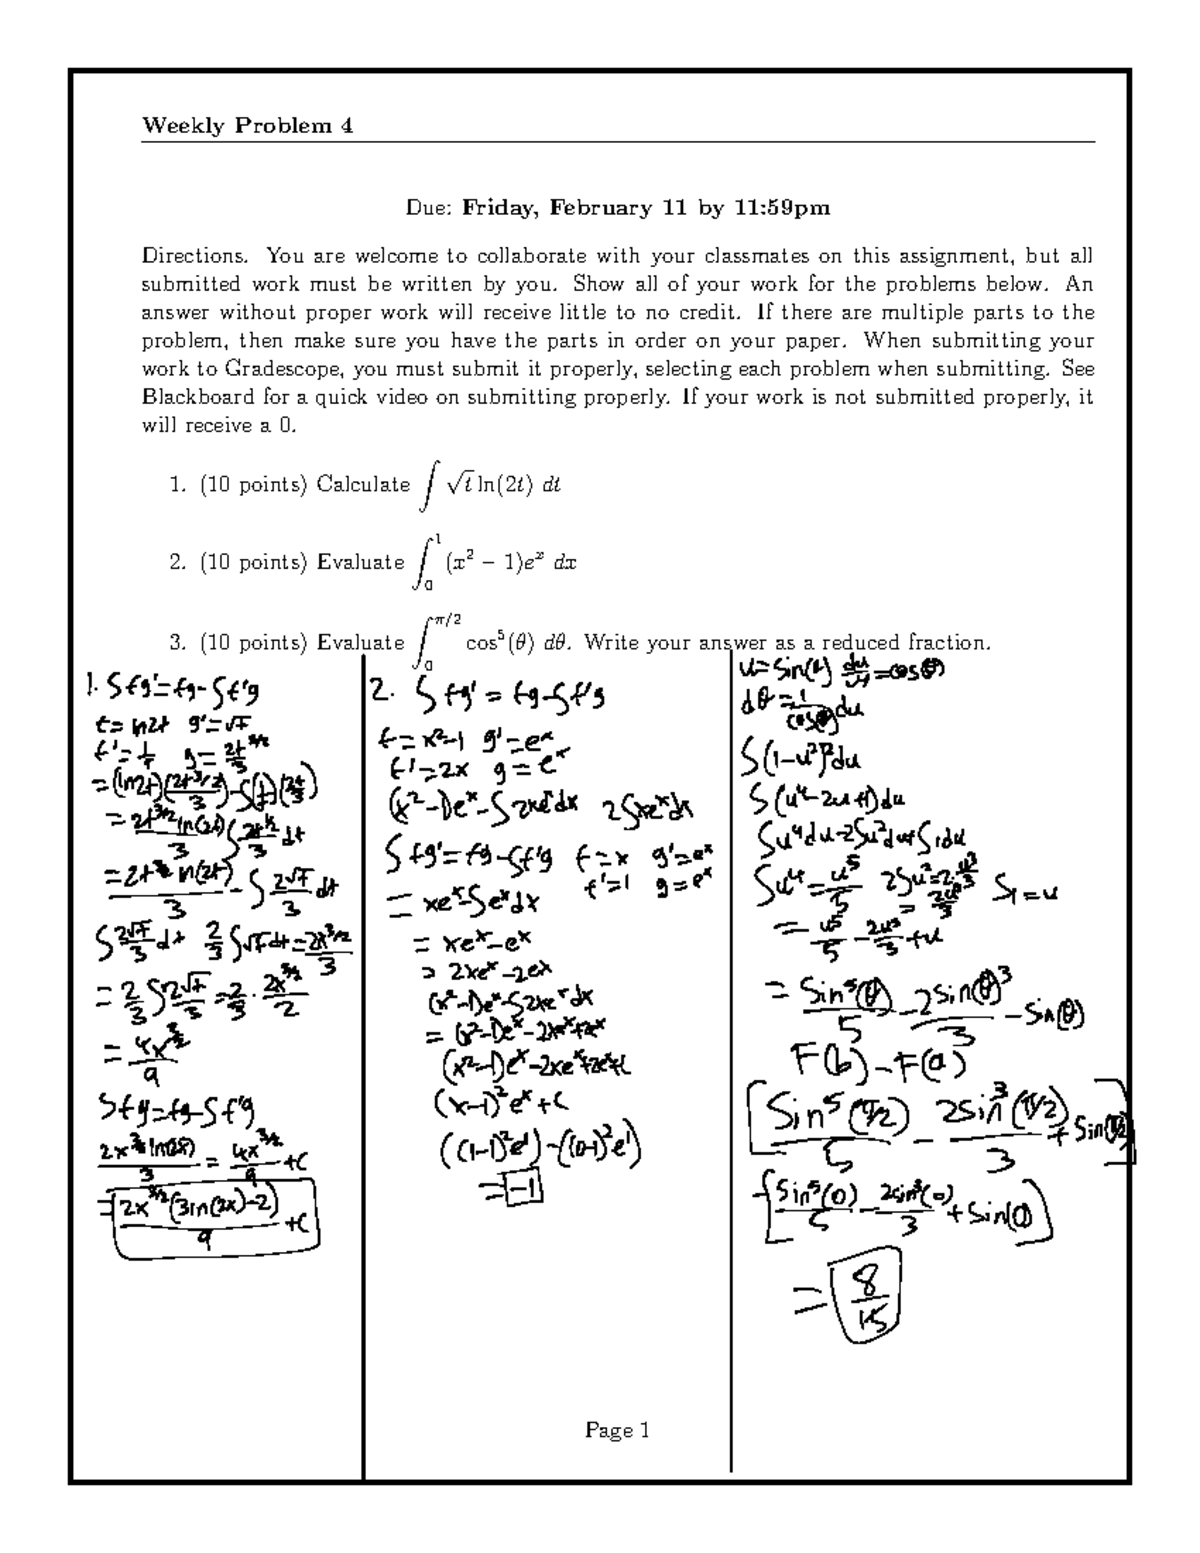 Weekly Problem 4
Due: Friday, February 11 by 11:59pm
Directions. You are welcome to collaborate with your classmates on this assignment, but all
submitted work must be written by you. Show all of your work for the problems below. An
answer without proper work will receive little to no credit. If there are multiple parts to the
problem, then make sure you have the parts in order on your paper. When submitting your
work to Gradescope, you must submit it properly, selecting each problem when submitting. See
Blackboard for a quick video on submitting properly. If your work is not submitted properly, it
will receive a 0.
1. (10 points) Calculate ∫ √t ln(2t) dt
2. (10 points) Evaluate ∫₀¹ (x² − 1)eˣ dx
3. (10 points) Evaluate ∫₀^(π/2) cos⁵(θ) dθ. Write your answer as a reduced fraction.
1. ∫fg'=fg-∫f'g
f=ln2t g'=√t
f'=1/t g=2t^(3/2)/3
=(ln2t)(2t^(3/2)/3)-∫(1/t)(2t/3)
=2t^(3/2)ln(2t)/3 ∫2t^(1/2)/3 dt
∫2√t/3 dt 2/3∫√t dt=2x^(3/2)/3
=4x^(3/2)/9
2x^(3/2)ln(2x)/3 = 4x^(3/2)/9 +c
=2x^(3/2)(3ln(2x)-2)/9 +c
2. ∫fg' = fg-∫f'g
f=x²-1 g'=eˣ
f'=2x g=eˣ
(x²-1)eˣ-∫2xeˣdx 2∫xeˣdx
∫fg'=fg-∫f'g f=x g'=eˣ
f'=1 g=eˣ
= xeˣ-∫eˣdx
= xeˣ-eˣ
= 2xeˣ-2eˣ
(x²-1)eˣ-∫2xeˣdx
= (x²-1)eˣ-2xeˣ+2eˣ
(x²-1)eˣ-2xeˣ+2eˣ+c
(x-1)²eˣ+c
((1-1)²e¹)-((0-1)²e¹)
=-1
u=sin(θ) du/dθ=cos(θ)
dθ=1/cos(θ) du
∫(1-u²)²du
∫(u⁴-2u+1)du
∫u⁴du-2∫u²du+∫1du
∫u⁴=u⁵/5 2∫u²=2·u³/3 ∫1=u
=2u³/3
=u⁵/5-2u³/3+u
=sin⁵(θ)/5-2sin(θ)³/3-sin(θ)
F(b)-F(a)
[sin⁵(π/2)/5 - 2sin³(π/2)/3 + sin(π/2)]
-[sin⁵(0)/5-2sin³(0)/3+sin(0)]
=8/15
Page 1